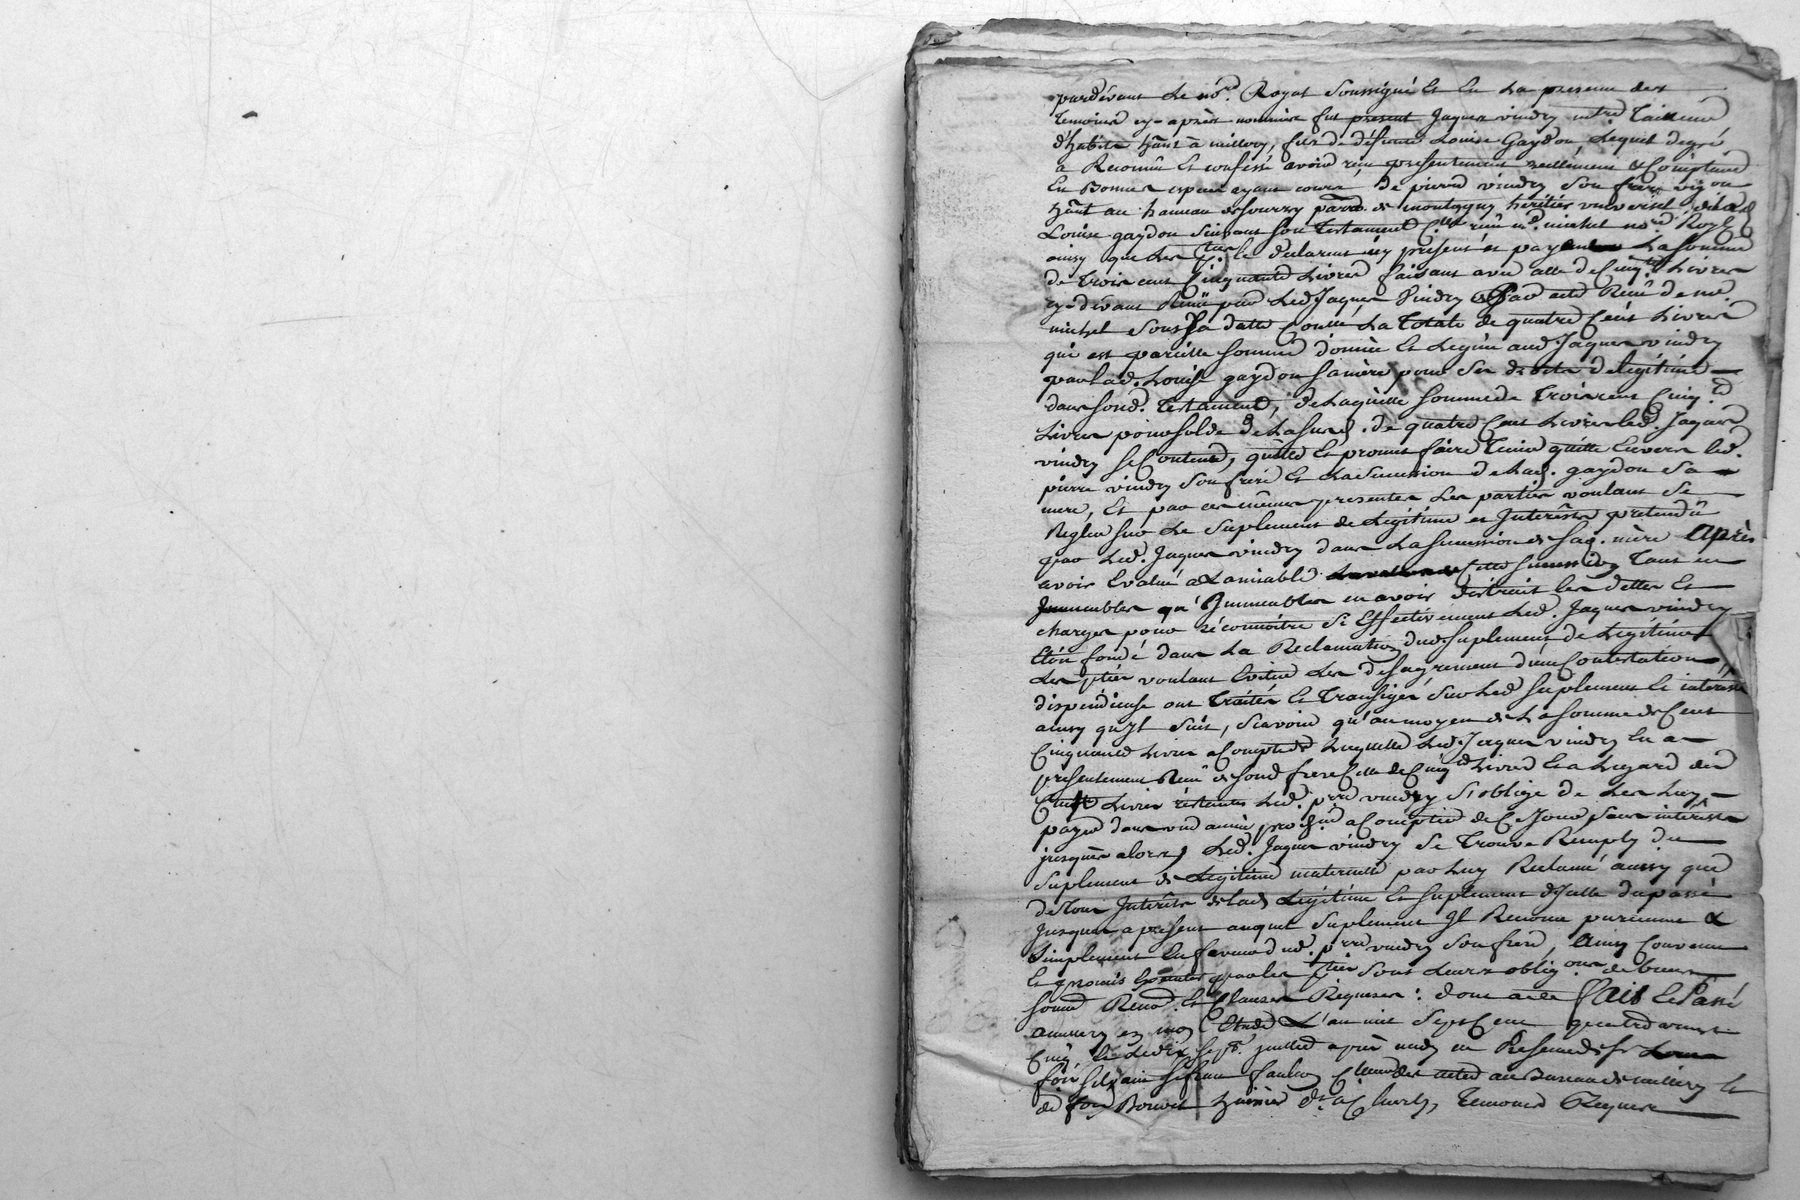 pardevant Le no.re Royal soussigné Et En La presence des
temoins cy-après nommés fut present Jaques vindry m.tre Tailleur
d'habits h̃ant à millery, fils de défunte Louise Gaydon, Lequel degré
a Reconnû Et confessé avoir reçu présentement reellement & Comptant
En Bonnes especes ayant cours de pierre vindry son frere vig.on
h̃ant au hameau de sourzy parr.se de montagny héritier universel de lad.
Louise gaydon suivant son Testament reçu m.e michel no.re Royal
ainsy que Les p.ties le declarent icy présent et payant La somme
de trois cent Cinquante Livres faisant avec celle de Cinq.te Livres
cy-devant Reçue par Led. Jaques Vindry par acte Reçu dem.e
michel sous sa datte Contrôlé La Totale de quatre Cent Livres
qui est pareille somme donnée Et Leguée aud. Jaques vindry
par lad. Louise gaydon sa mère pour ses droits de légitime
dans sond. Testament, de Laquelle somme de Trois cent Cinq.te
Livres pour solde de La susd. de quatre Cent Livres led. Jaques
vindry se Contente, quitte Et promet faire Tenir quitte Envers led.
pierre vindry son frere Et La succession de Lad. gaydon sa
mere, Et par ces mêmes presentes Les parties voulant se
Regler sur Le suplement de Légitime et Interêts pretendu
par Led. Jaques vindry dans La succession de sad. mère après
avoir Evalué a Lamiable Cette succession Tant en
meubles qu'Immeubles en avoir distrait les dettes Et
charges pour réconnoitre si Effectivement Led. Jaques vindry
Etoit fondé dans La Reclamation dud. suplement de Légitime
Les p.ties voulant Eviter Les désagrement d'une Contestation
dispendieuse ont Traités Et Transigés sur Led. suplement Et interêts
ainsy qu'yl suit, sçavoir qu'au moyen de La somme de Cent
Cinquante Livres a Compte de Laquelle Led. Jaques vindry En a
présentement Reçu de sond. frere Celle de Cinq.te Livres Et a Legard des
Cent Livres restantes Led. p.rre vindry s'oblige de Les Luy
payer dans une année proch.ne a Compter de Ce Jour sans interêts
jusques alors, Led. Jaques vindry se Trouve Remply du
suplement de Légitime maternelle par Luy Reclamé aussy que
de Tous Interêts de Lad. Légitime Et suplement d'Icelle du passé
Jusques a present auquel suplement Il Renonce purement &
simplement En faveur dud. p.rre vindry son frere, Ainsy Convenu
Et promis par les p.ties sous Leurs oblig.ons de biens
soum. Renon. Et Clauses Requises : dont acte fait Et Passé
a millery en mon Etude L'an mil Sept Cent quatre vingt
Cinq Le dix sept juillet après midy en Présence de s.r
Commis des actes au Bureau de millery Et
de Huissier Temoins Requis